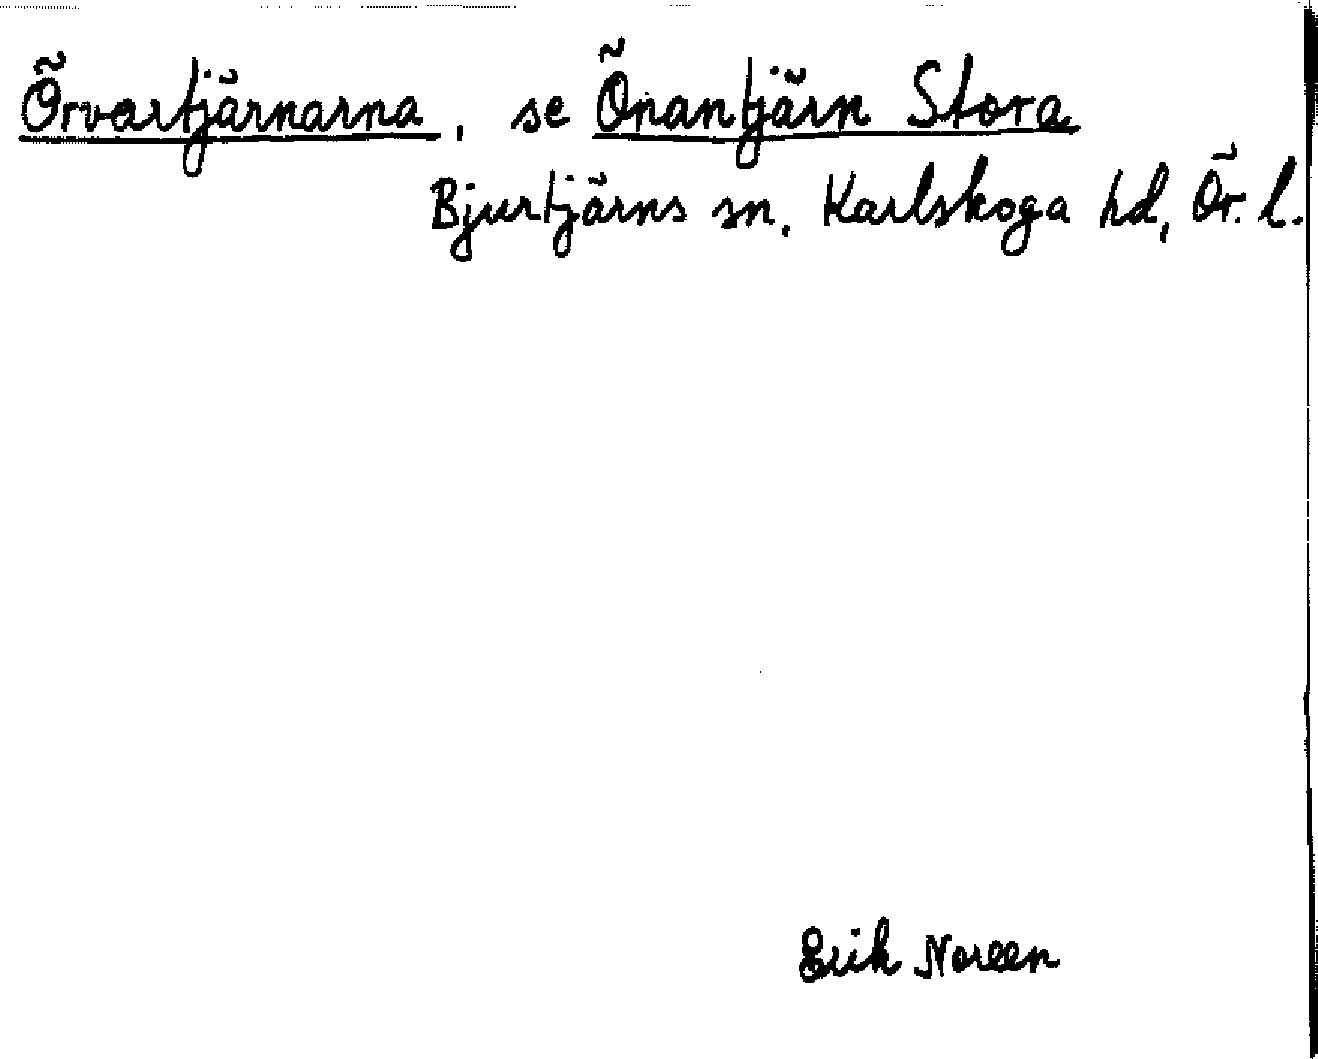 Örvartjärnarna, se Önantjärn Stora
Bjurtjärns sn, Karlskoga hd, Ör. l.
Erik Noreen